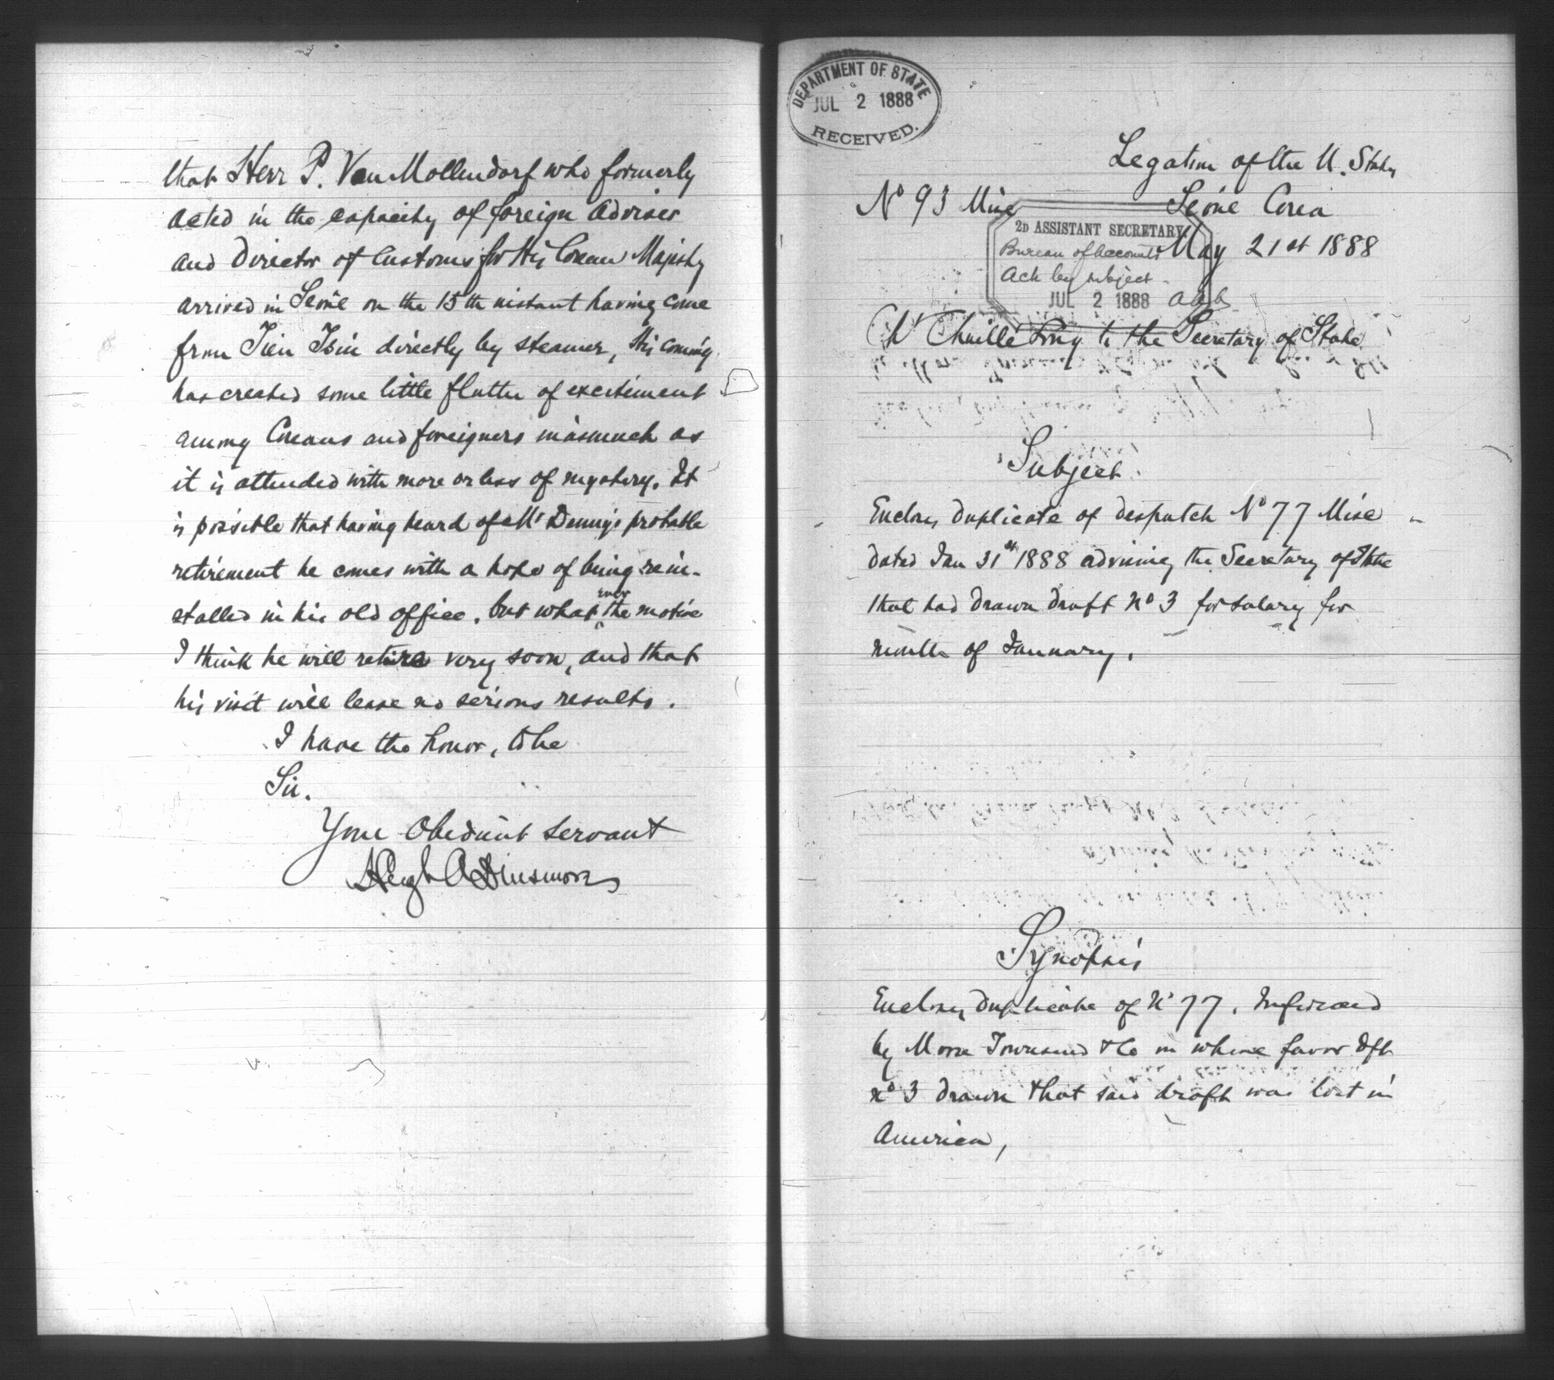 that Herr P. Von Mollendorf who formerly
acted in the capacity of foreign adviser
and Director of Customs for His Corean Majesty
arrived in Seoúl on the 15th instant having come
from Tien Tsin directly by steamer, His coming
has created some little flutter of excitement
among Coreans and foreigners inasmuch as
it is attended with more or less of mystery. It
is possible that having heard of Mr Denny's probable
retirement he comes with a hope of being rein-
stalled in his old office, but what ever the motive
I think he will retire very soon, and that
his visit will leave no serious results.
I have the honor, to be
Sir.
Your Obedient Servant
Hugh A Dinsmore
DEPARTMENT OF STATE
JUL 2 1888
RECEIVED.
Legation of the U. States
No 93 Misc
Seoúl Corea
May 21st 1888
2D ASSISTANT SECRETARY.
Bureau of Accounts
Ack by subject.
JUL 2 1888
Mr Chaillé Long to the Secretary of State
Subject.
Encloses duplicate of despatch No 77 Misc
dated Jan 31st 1888 advising the Secretary of State
that had drawn draft no 3 for salary for
month of January.
Synopsis
Encloses duplicate of No 77. Informed
by Morse Townsend & Co in whose favor dft
no 3 drawn that said draft was lost in
America,